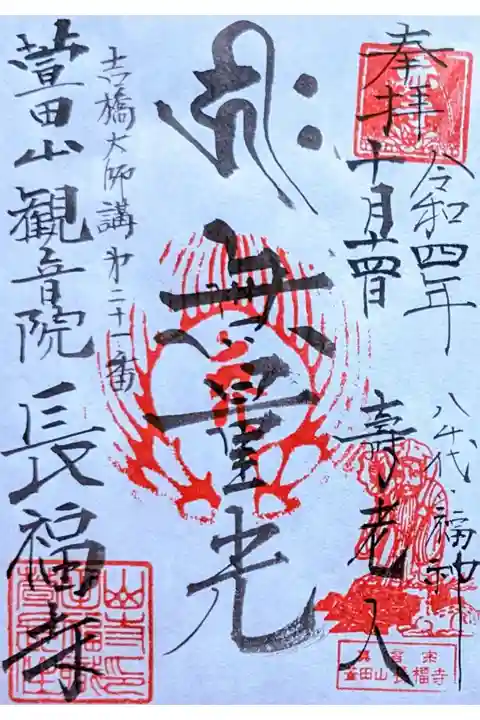 奉拝
令和四年
十月十四日
八千代・福神
壽老人
𑖮𑖿𑖨𑖱𑖾
無量光
吉橋大師講第二十一番
萱田山観音院長福寺
真言宗
萱田山長福寺